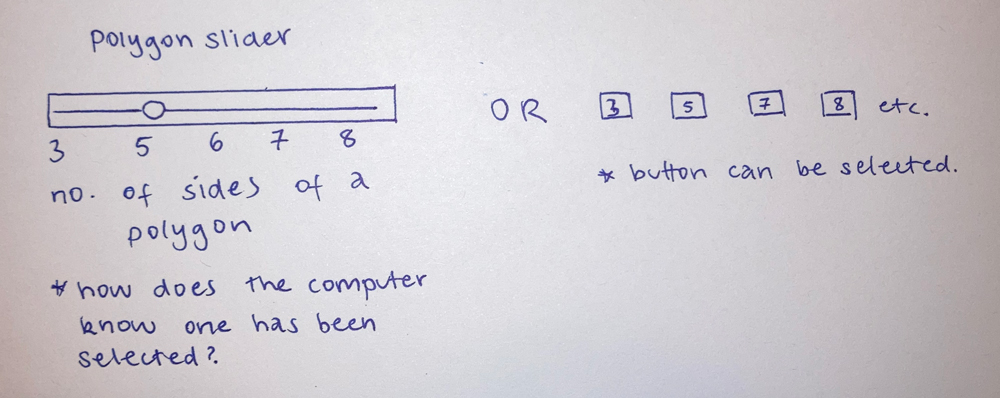 polygon slider
3 5 6 7 8
no. of sides of a
polygon
* how does the computer
know one has been
selected?
OR 3 5 7 8 etc.
* button can be selected.